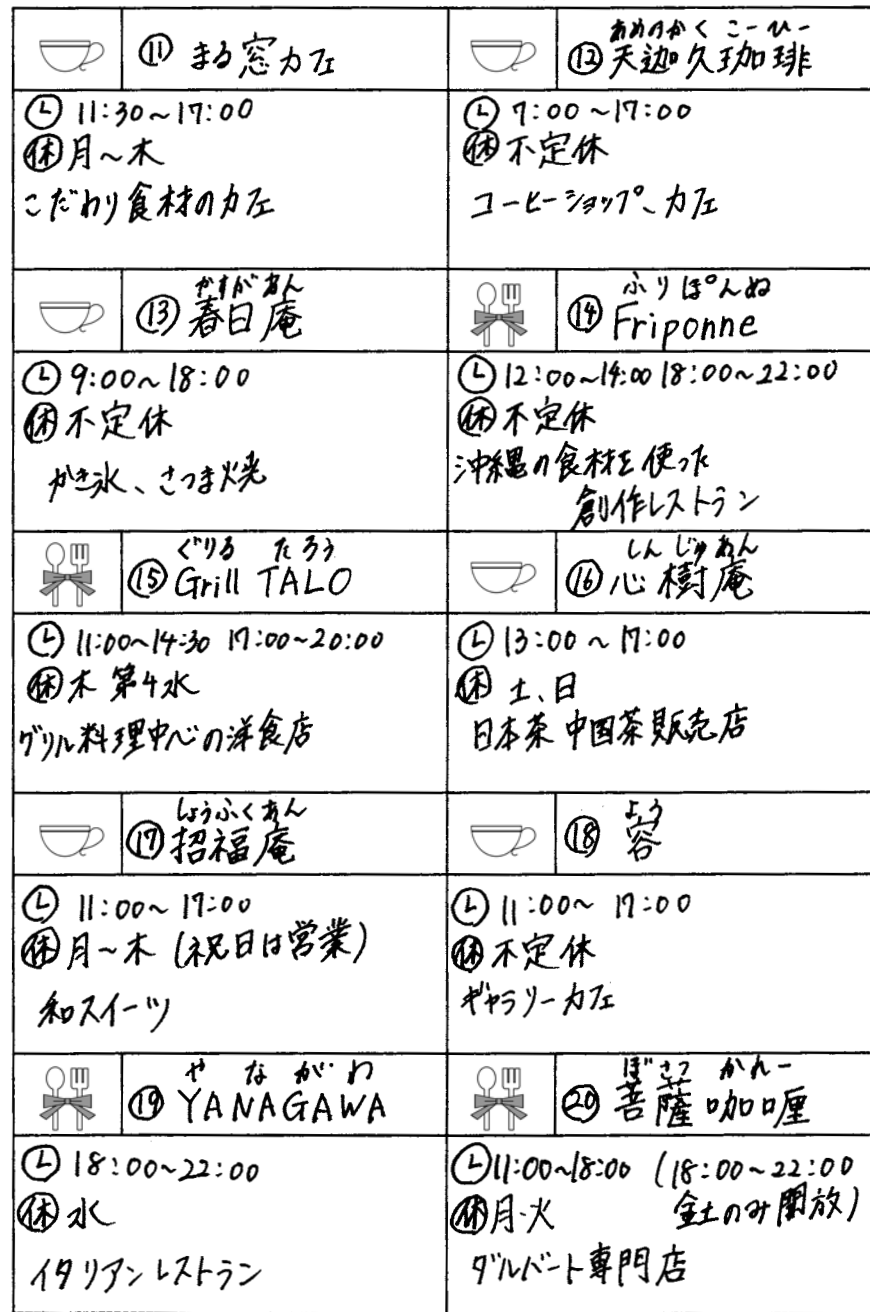 ⑪ まる窓カフェ
Ⓛ 11:30~17:00
㊡ 月~木
こだわり食材のカフェ
あめのかく こーひー
⑫ 天迦久珈琲
Ⓛ 7:00~17:00
㊡ 不定休
コーヒーショップ、カフェ
かすがあん
⑬ 春日庵
Ⓛ 9:00~18:00
㊡ 不定休
かき氷、さつま焼
ふりぽんぬ
⑭ Friponne
Ⓛ 12:00~14:00 18:00~22:00
㊡ 不定休
沖縄の食材を使った
創作レストラン
ぐりる たろう
⑮ Grill TALO
Ⓛ 11:00~14:30 17:00~20:00
㊡ 木 第4水
グリル料理中心の洋食店
しんじゅあん
⑯ 心樹庵
Ⓛ 13:00~17:00
㊡ 土、日
日本茶 中国茶販売店
しょうふくあん
⑰ 招福庵
Ⓛ 11:00~17:00
㊡ 月~木 (祝日は営業)
和スイーツ
よう
⑱ 容
Ⓛ 11:00~17:00
㊡ 不定休
ギャラリーカフェ
やながわ
⑲ YANAGAWA
Ⓛ 18:00~22:00
㊡ 水
イタリアンレストラン
ぼさつ かれー
⑳ 菩薩咖喱
Ⓛ 11:00~18:00 (18:00~22:00
㊡ 月・火 金土のみ開放)
ダルバート専門店